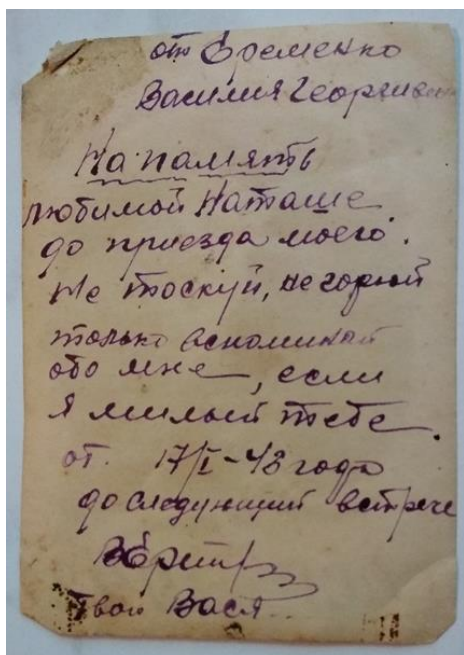 от Еременко
Василия Георгиев
На память
любимой Наташе
до приезда моего.
Не тоскуй, не горюй
только вспоминай
обо мне, если
я милый тебе.
от. 17/I-48 года
до следующий встрече
твой Вася